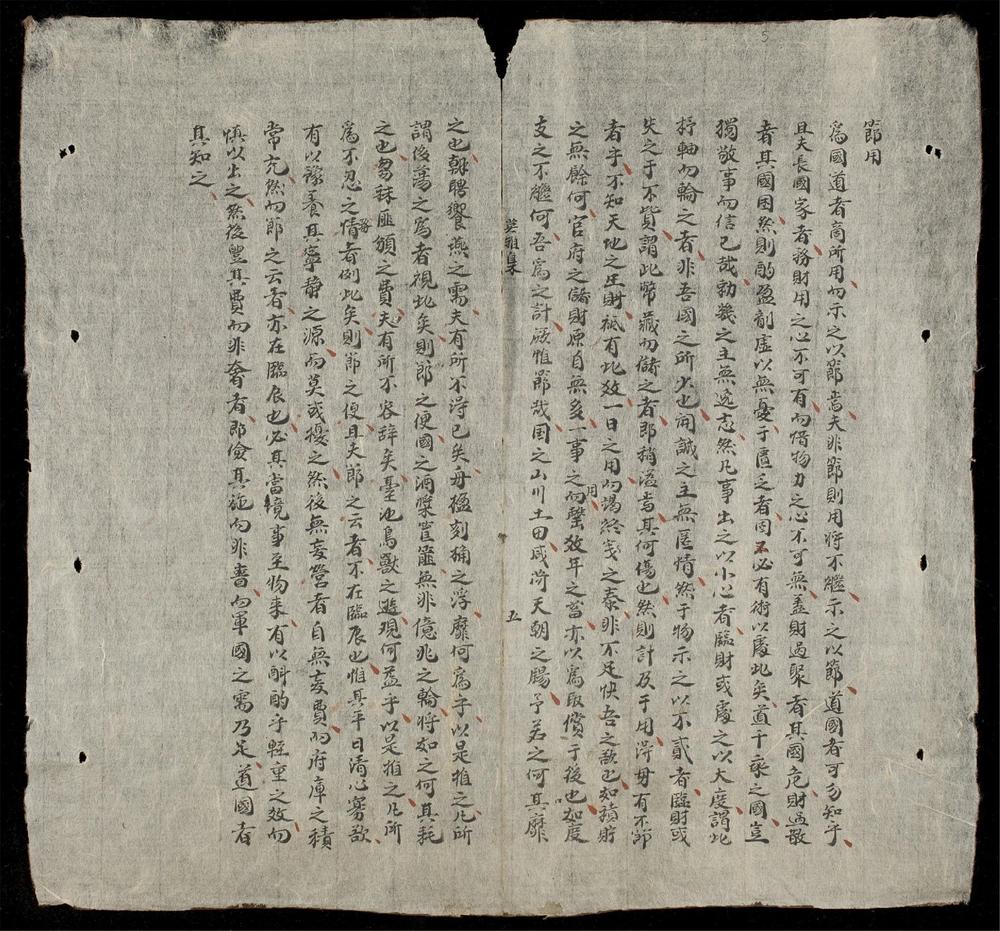 節用
為國道者商所用而示之以節焉夫非節則用將不繼示之以節道國者可勿知乎
且夫長國家者務財用之心不可有而惜物力之心不可無盖財過聚者其國危財過散
者其國困然則酌盈剂虛以無憂于匱乏者固不必有術以處此矣道千乘之國豈
獨敬事而信已哉勅幾之主無逸志然凡事出之以小心者臨財或處之以大度謂此
杼軸而輸之者非吾國之所少也開誠之主無匿情然于物示之以不貳者臨財或
失之于不貲謂此幣藏而儲之者即稍溢焉其何傷也然則計及于用得毋有不節
者乎不知天地之生財祗有此數一日之用而竭終歲之泰非不足快吾之欲也如積貯
之無餘何官府之儲財原自無多一事之用而罄數年之畜亦以為取償于後也如度
支之不繼何吾為之計厥惟節哉国之山川土田咸荷天朝之賜予若之何其靡
英雅直末
五
之也朝聘饗燕之需夫有所不得已矣丹楹刻桷之浮靡何為乎以是推之凡所
謂侈蕩之為者視此矣則節之便國之酒漿筐篚無非億兆之輸將如之何其耗
之也芻秣匪頒之費夫有所不容辞矣臺池鳥獸之遊現何益乎以是推之凡所
為不忍之情者例此矣則節之便且夫節之云者不在臨辰也惟其平日清心寡欲
有以豫養其寧静之源而莫或擾之然後無妄營者自無妄費而府庫之積
常充然而節之云者亦在臨辰也必其當境事至物来有以斟酌乎輕重之效而
慎以出之然後豐其費而非奢者即儉其施而非嗇而軍國之需乃足道國者
其知之